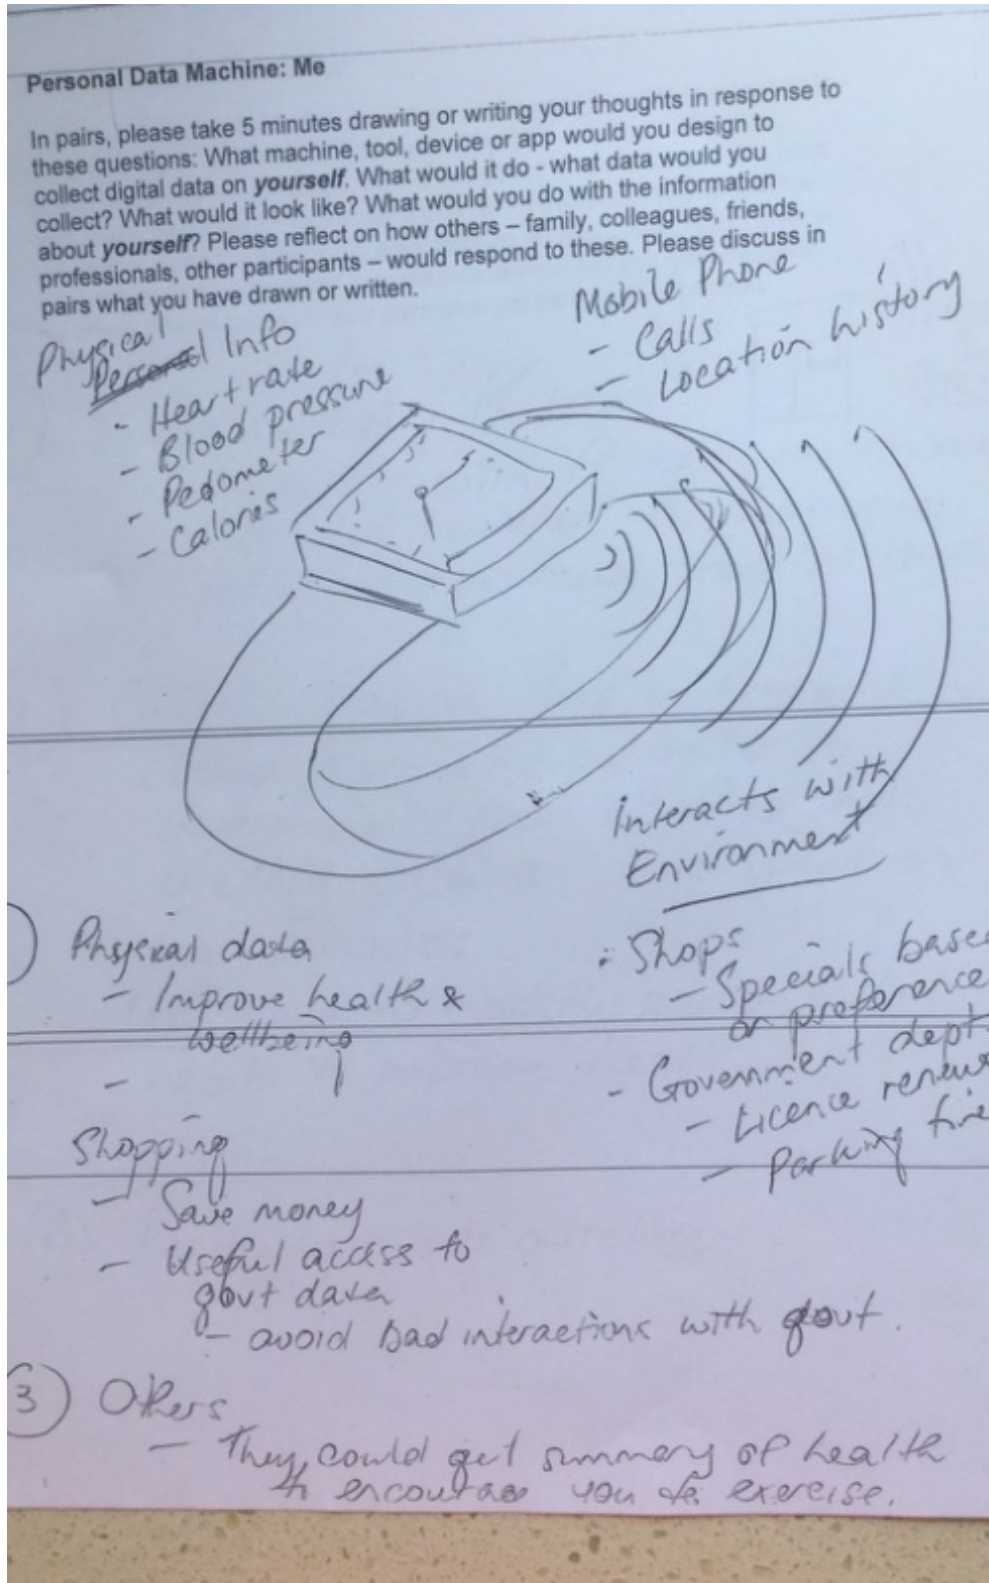 Personal Data Machine: Me
In pairs, please take 5 minutes drawing or writing your thoughts in response to
these questions: What machine, tool, device or app would you design to
collect digital data on yourself. What would it do - what data would you
collect? What would it look like? What would you do with the information
about yourself? Please reflect on how others – family, colleagues, friends,
professionals, other participants – would respond to these. Please discuss in
pairs what you have drawn or written.
Physical
Personal Info
- Heart rate
- Blood pressure
- Pedometer
- Calories
Mobile Phone
- Calls
- Location history
Interacts with
Environment
Physical data
- Improve health &
wellbeing
-
Shopping
- Save money
- Useful access to
govt data
- avoid bad interactions with govt.
: Shops
- Specials base
on preference
- Government dept
- Licence renew
- Parking fine
3 Others
- They could get summary of health
to encourage you to exercise.